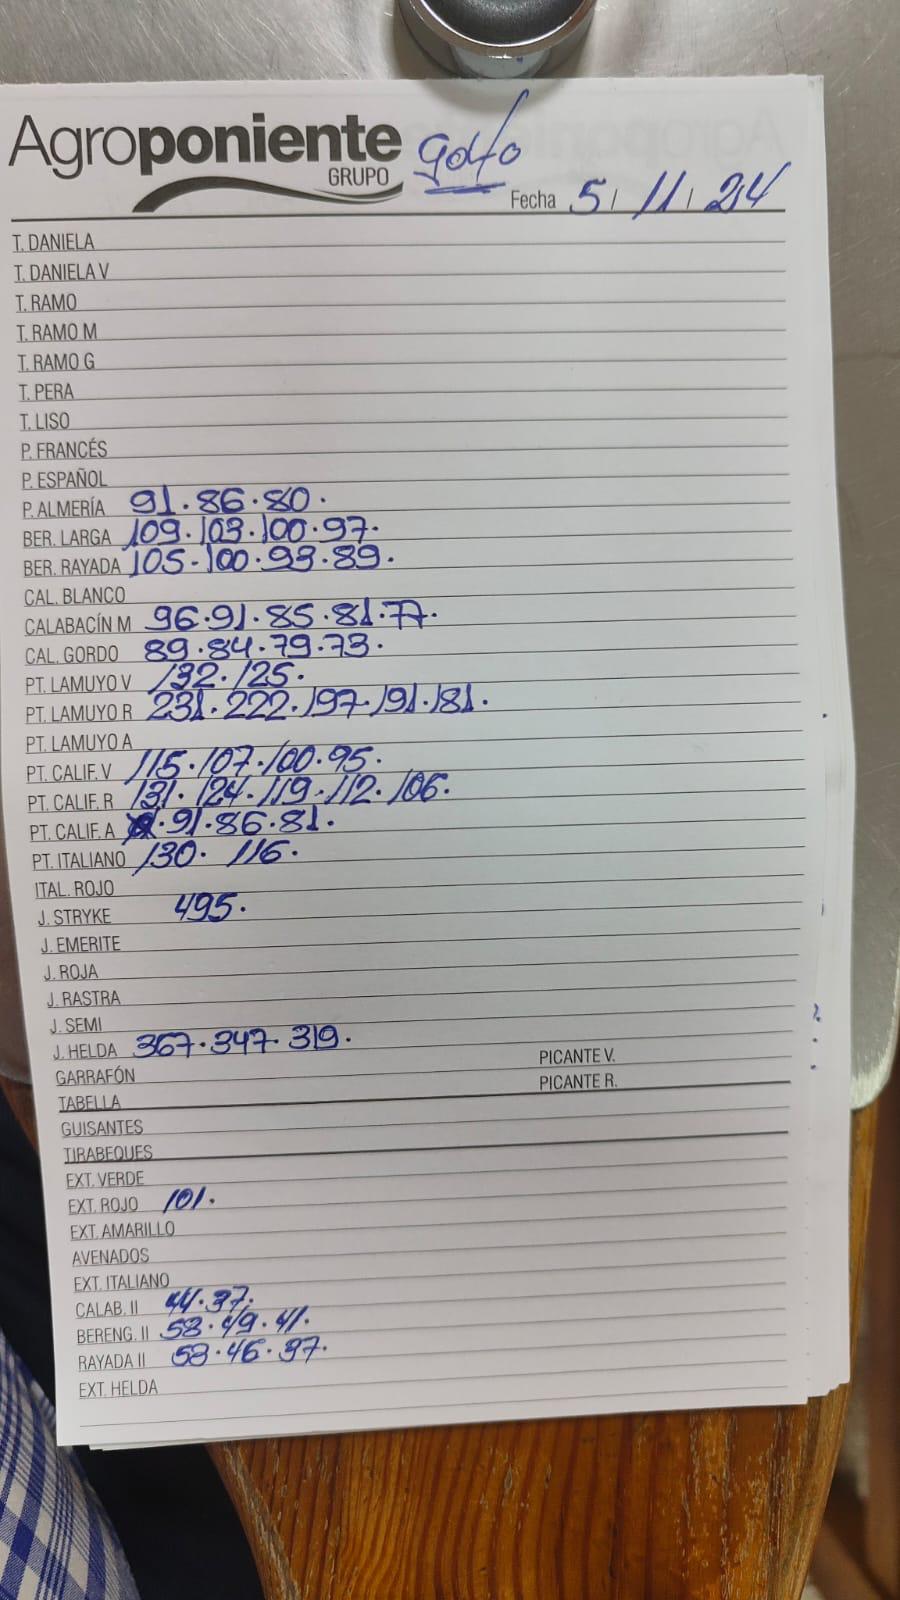 Agroponiente
GRUPO
golfo
Fecha 5 / 11 / 24
T. DANELA
T. DANIELA V
T. RAMO
T. RAMO M
T. RAMO G
T. PERA
T. LISO
P. FRANCÉS
P. ESPAÑOL
P. ALMERÍA 91. 86. 80.
BER. LARGA 109. 103. 100. 97.
BER. RAYADA 105- 100. 93. 89.
CAL. BLANCO
CALABACÍN M 96. 91. 85. 81. 77.
CAL. GORDO 89. 84. 79. 73.
PT. LAMUYO V 132. 125.
PT. LAMUYO R 231. 222. 197. 191. 181.
PT. LAMUYO A
PT. CALIF. V 115. 107. 100. 95.
PT. CALIF. R 131. 124. 119. 112. 106.
PT. CALIF. A 91. 86. 81.
PT. ITALIANO 130. 116.
ITAL. ROJO
J. STRYKE 495.
J. EMERITE
J. ROJA
J. RASTRA
J. SEMI
J. HELDA 367. 347. 319.
GARRAFÓN PICANTE V.
TABELLA PICANTE R.
GUISANTES
TIRABEQUES
EXT. VERDE
EXT. ROJO 101.
EXT. AMARILLO
AVENADOS
EXT. ITALIANO
CALAB. II 44. 37.
BERENG. II 53. 49. 41.
RAYADA II 53. 46. 37.
EXT. HELDA